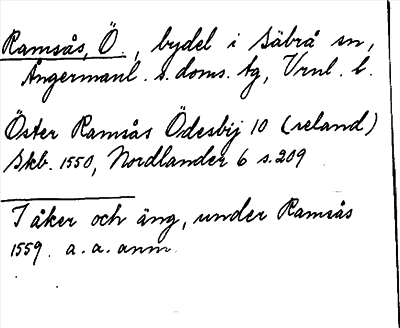 Ramsås, Ö., bydel i Säbrå sn,
Ångermanl. s. doms. tg, Vrnl. l.
Öster Ramsås Ödesbij 10 (seland)
Skb. 1550, Nordlander 6 s. 209
I åker och äng, under Ramsås
1559. a. a. anm.